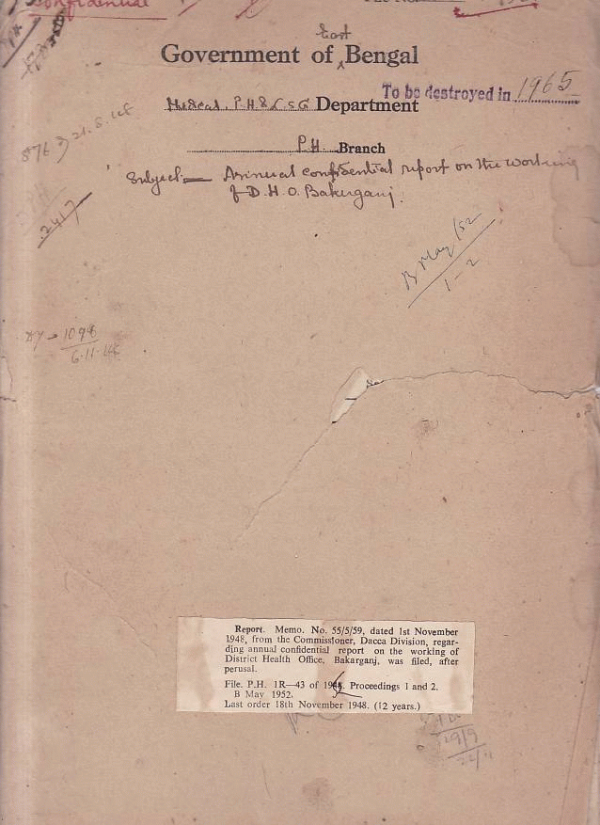 Confidential
East
Government of Bengal
To be destroyed in 1965
Medical, P.H. & L.S.G Department
P.H. Branch
Subject— Annual confidential report on the working
of D.H.O. Bakerganj.
B May/52
1-2
1098
6.11.48
Report. Memo. No. 55/5/59, dated 1st November
1948, from the Commissioner, Dacca Division, regar-
ding annual confidential report on the working of
District Health Office, Bakarganj, was filed, after
perusal.
File. P.H. 1R—43 of Proceedings 1 and 2.
B May 1952.
Last order 18th November 1948. (12 years.)